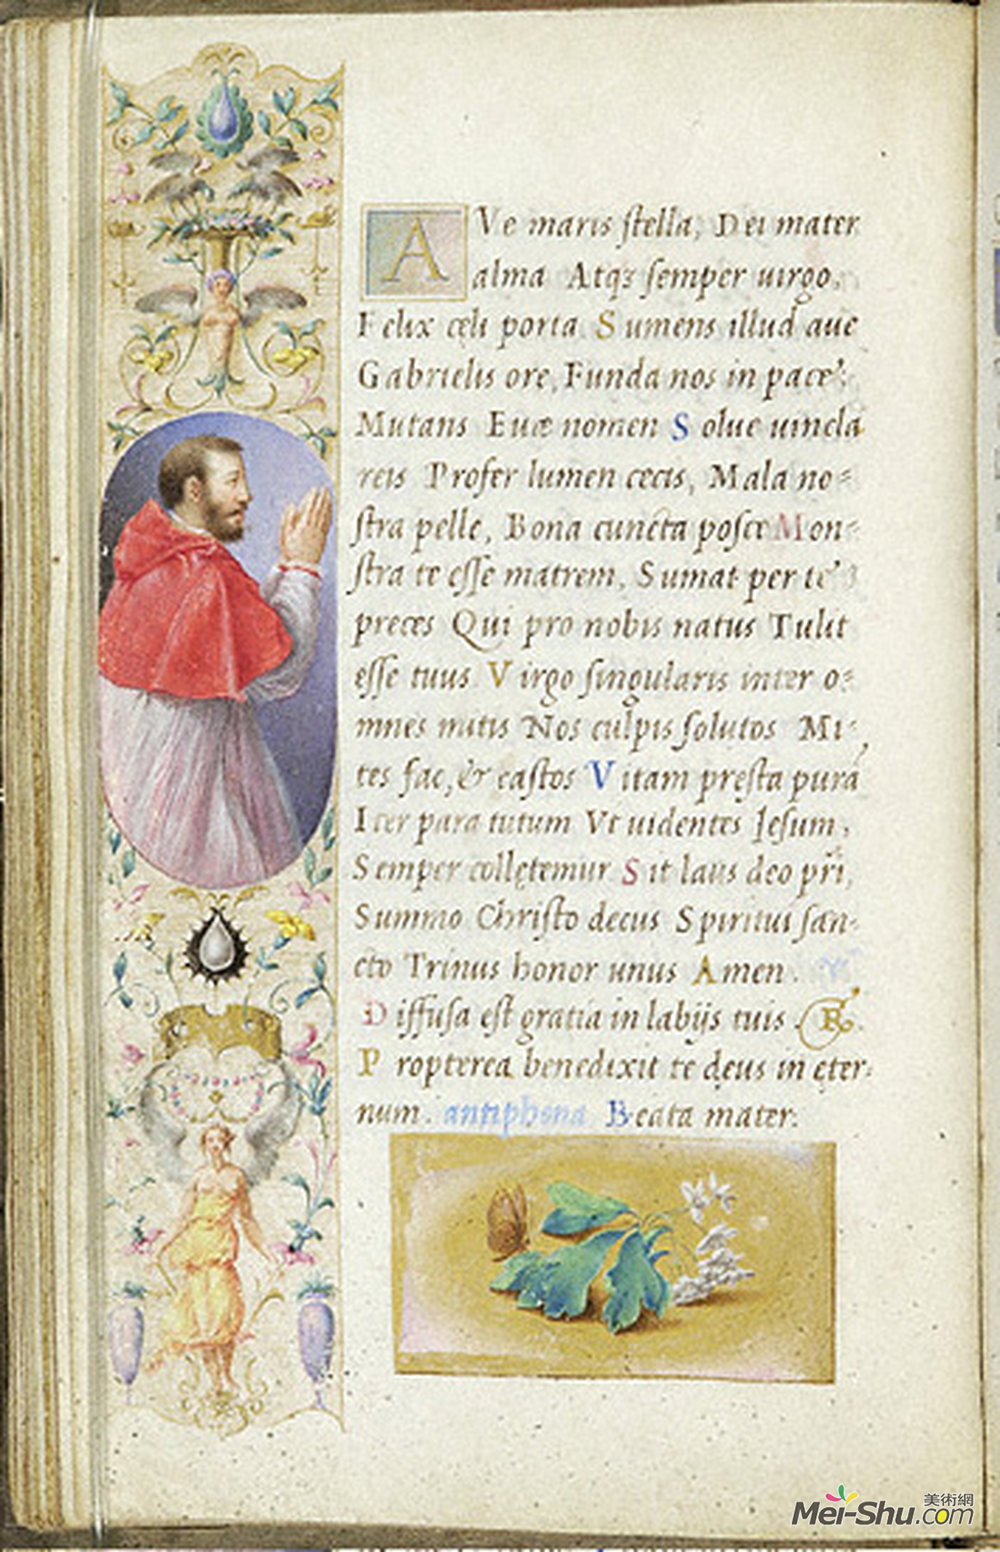 AVe maris ſtella, Dei mater
alma Atqꝫ ſemper uirgo,
Felix cęli porta Sumens illud aue
Gabrielis ore, Funda nos in pace,
Mutans Euæ nomen Solue uincla
reis Profer lumen cecis, Mala no=
ſtra pelle, Bona cuncta poſce Mon=
ſtra te eſſe matrem, Sumat per te
preces Qui pro nobis natus Tulit
eſſe tuus Virgo ſingularis inter o=
mnes mitis Nos culpis ſolutos Mi=
tes fac, & caſtos Vitam pręſta purā
Iter para tutum Vt uidentes Ieſum,
Semper collętemur Sit laus deo pr̄i,
Summo Chriſto decus Spiritui ſan=
cto Trinus honor unus Amen.
Diffuſa eſt gratia in labijs tuis. ℞.
Propterea benedixit te deus in ęter=
num. antiphona Beata mater.
美術網
Mei-Shu.com